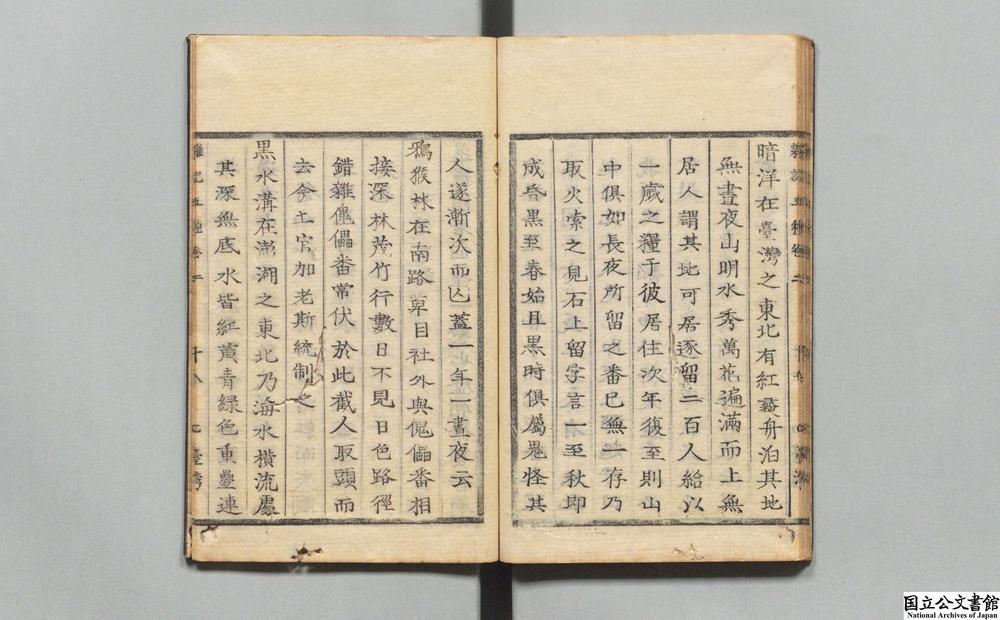 暗洋在臺灣之東北有紅彝舟泊其地
無晝夜山明水秀萬花遍滿而上無
居人謂其地可居遂留二百人給以
一歲之糧于彼居住次年復至則山
中俱如長夜所留之番已無一存乃
取火索之見石上留字言一至秋即
成昏黑至春始旦黒時俱屬鬼怪其
人遂漸次而亾蓋一年一晝夜云
鴉猴林在南路萆目社外與傀儡番相
接深林茂竹行數日不見日色路徑
錯雜傀儡番常伏於此截人取頭而
去今土官加老斯統制之
黒水溝在澎湖之東北乃海水横流處
其深無底水皆紅黄青綠色重疊連
卷二
十八
臺灣
国立公文書館
National Archives of Japan